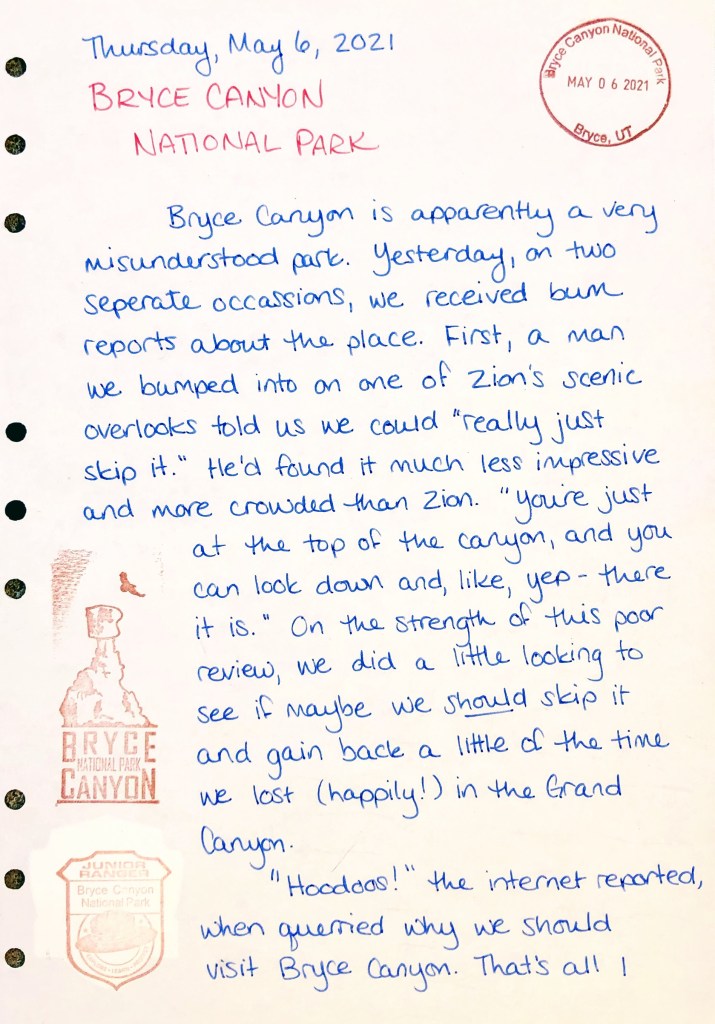 Thursday, May 6, 2021
BRYCE CANYON
NATIONAL PARK
Bryce Canyon National Park
MAY 06 2021
Bryce, UT
Bryce Canyon is apparently a very
misunderstood park. Yesterday, on two
seperate occassions, we received bum
reports about the place. First, a man
we bumped into on one of Zion's scenic
overlooks told us we could "really just
skip it." He'd found it much less impressive
and more crowded than Zion. "You're just
at the top of the canyon, and you
can look down and, like, yep - there
it is." On the strength of this poor
review, we did a little looking to
see if maybe we should skip it
and gain back a little of the time
we lost (happily!) in the Grand
Canyon.
"Hoodoos!" the internet reported,
when querried why we should
visit Bryce Canyon. That's all I
BRYCE
NATIONAL PARK
CANYON
JUNIOR
RANGER
Bryce Canyon
National Park